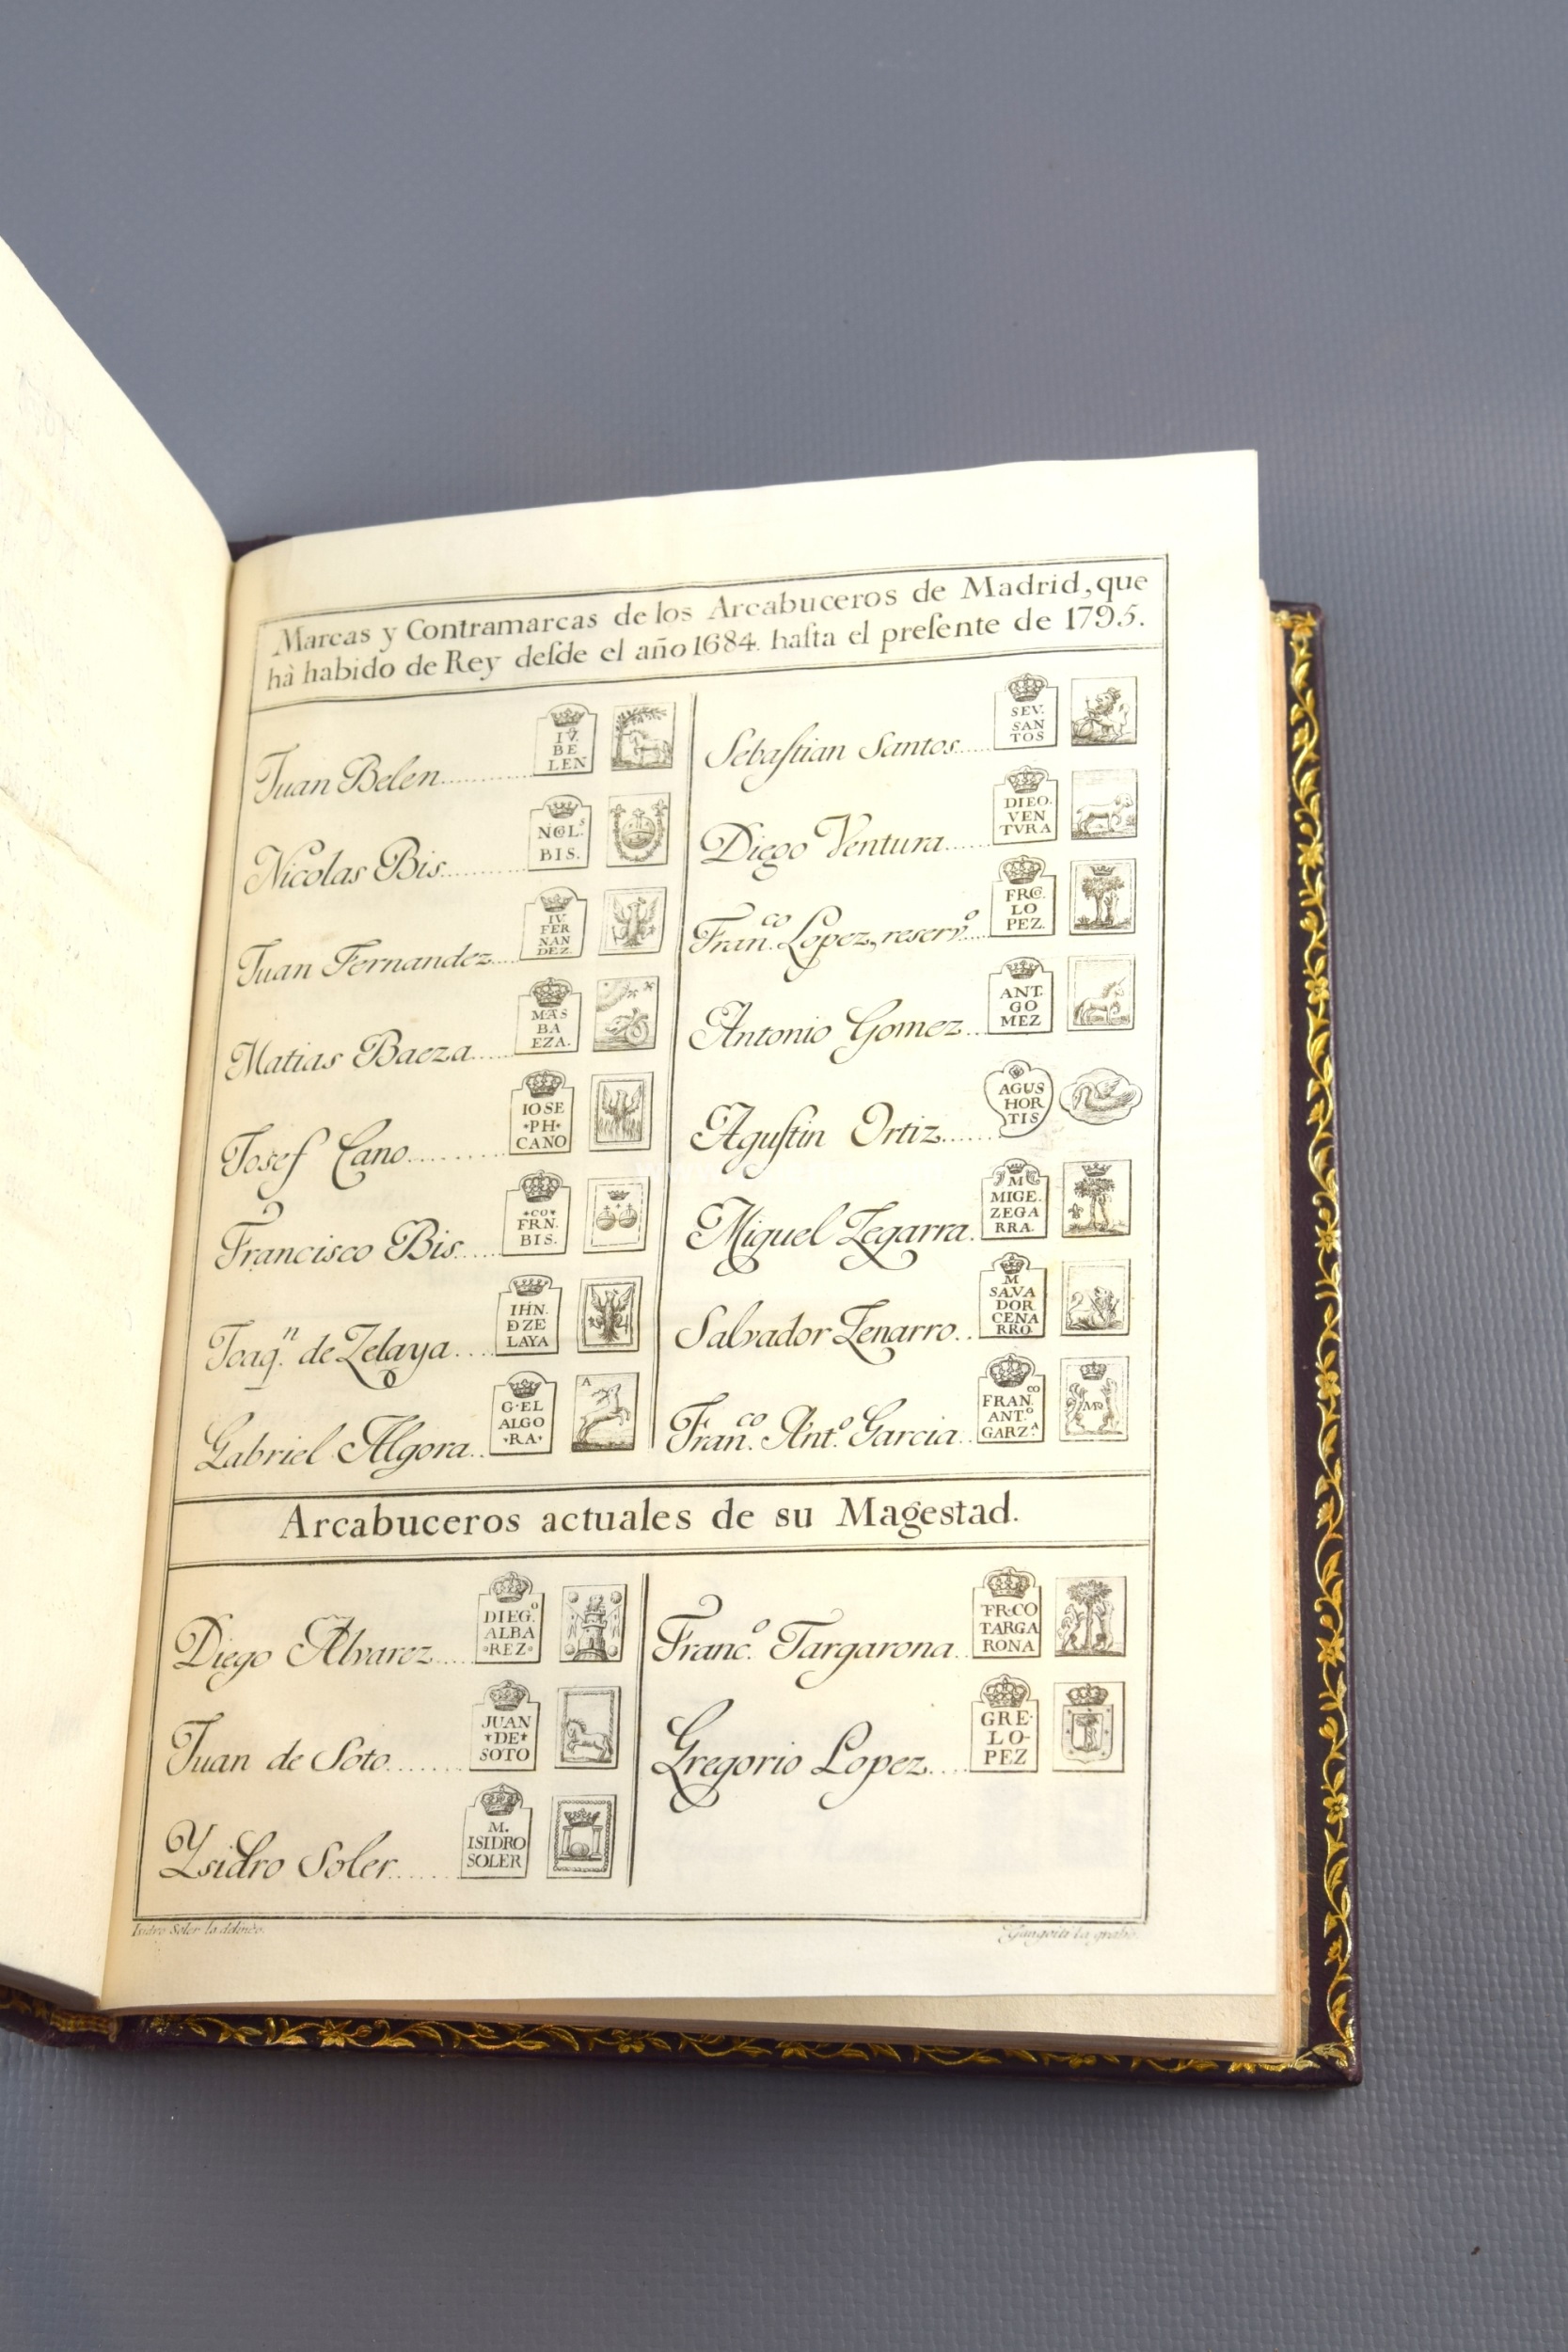 Marcas y Contramarcas de los Arcabuceros de Madrid, que
hà habido de Rey deſde el año 1684. haſta el preſente de 1795.
Juan Belen
IV.
BE
LEN
Nicolas Bis
NCOL.S
BIS.
Juan Fernandez
IV.
FER
NAN
DEZ.
Matias Baeza
MAS
BA
EZA.
Josef Cano
IOSE
*PH*
CANO
Francisco Bis
*CO*
FRN.
BIS.
Joaq.n de Zelaya
IHN.
DZE
LAYA
Gabriel Algora
G·EL
ALGO
·RA·
A
Sebaſtian Santos
SEV.
SAN
TOS
Diego Ventura
DIEO.
VEN
TVRA
Fran.co Lopez, reserv.o
FRCO.
LO
PEZ.
Antonio Gomez
ANT.
GO
MEZ
Aguſtin Ortiz
AGUS
HOR
TIS
Miguel Zegarra
M
MIGE.
ZEGA
RRA.
Salvador Zenarro
M
SAVA
DOR
CENA
RRO
Fran.co Ant.o Garcia
FRAN.CO
ANT.O
GARZ.A
Arcabuceros actuales de su Magestad.
Diego Alvarez
DIEG.O
ALBA
REZ
Juan de Soto
JUAN
*DE*
SOTO
Ysidro Soler
M.
ISIDRO
SOLER
Franc.o Targarona
FRCO
TARGA
RONA
Gregorio Lopez
GRE·
LO-
PEZ
Isidro Soler lo delineò.
Gangoiti la grabò.